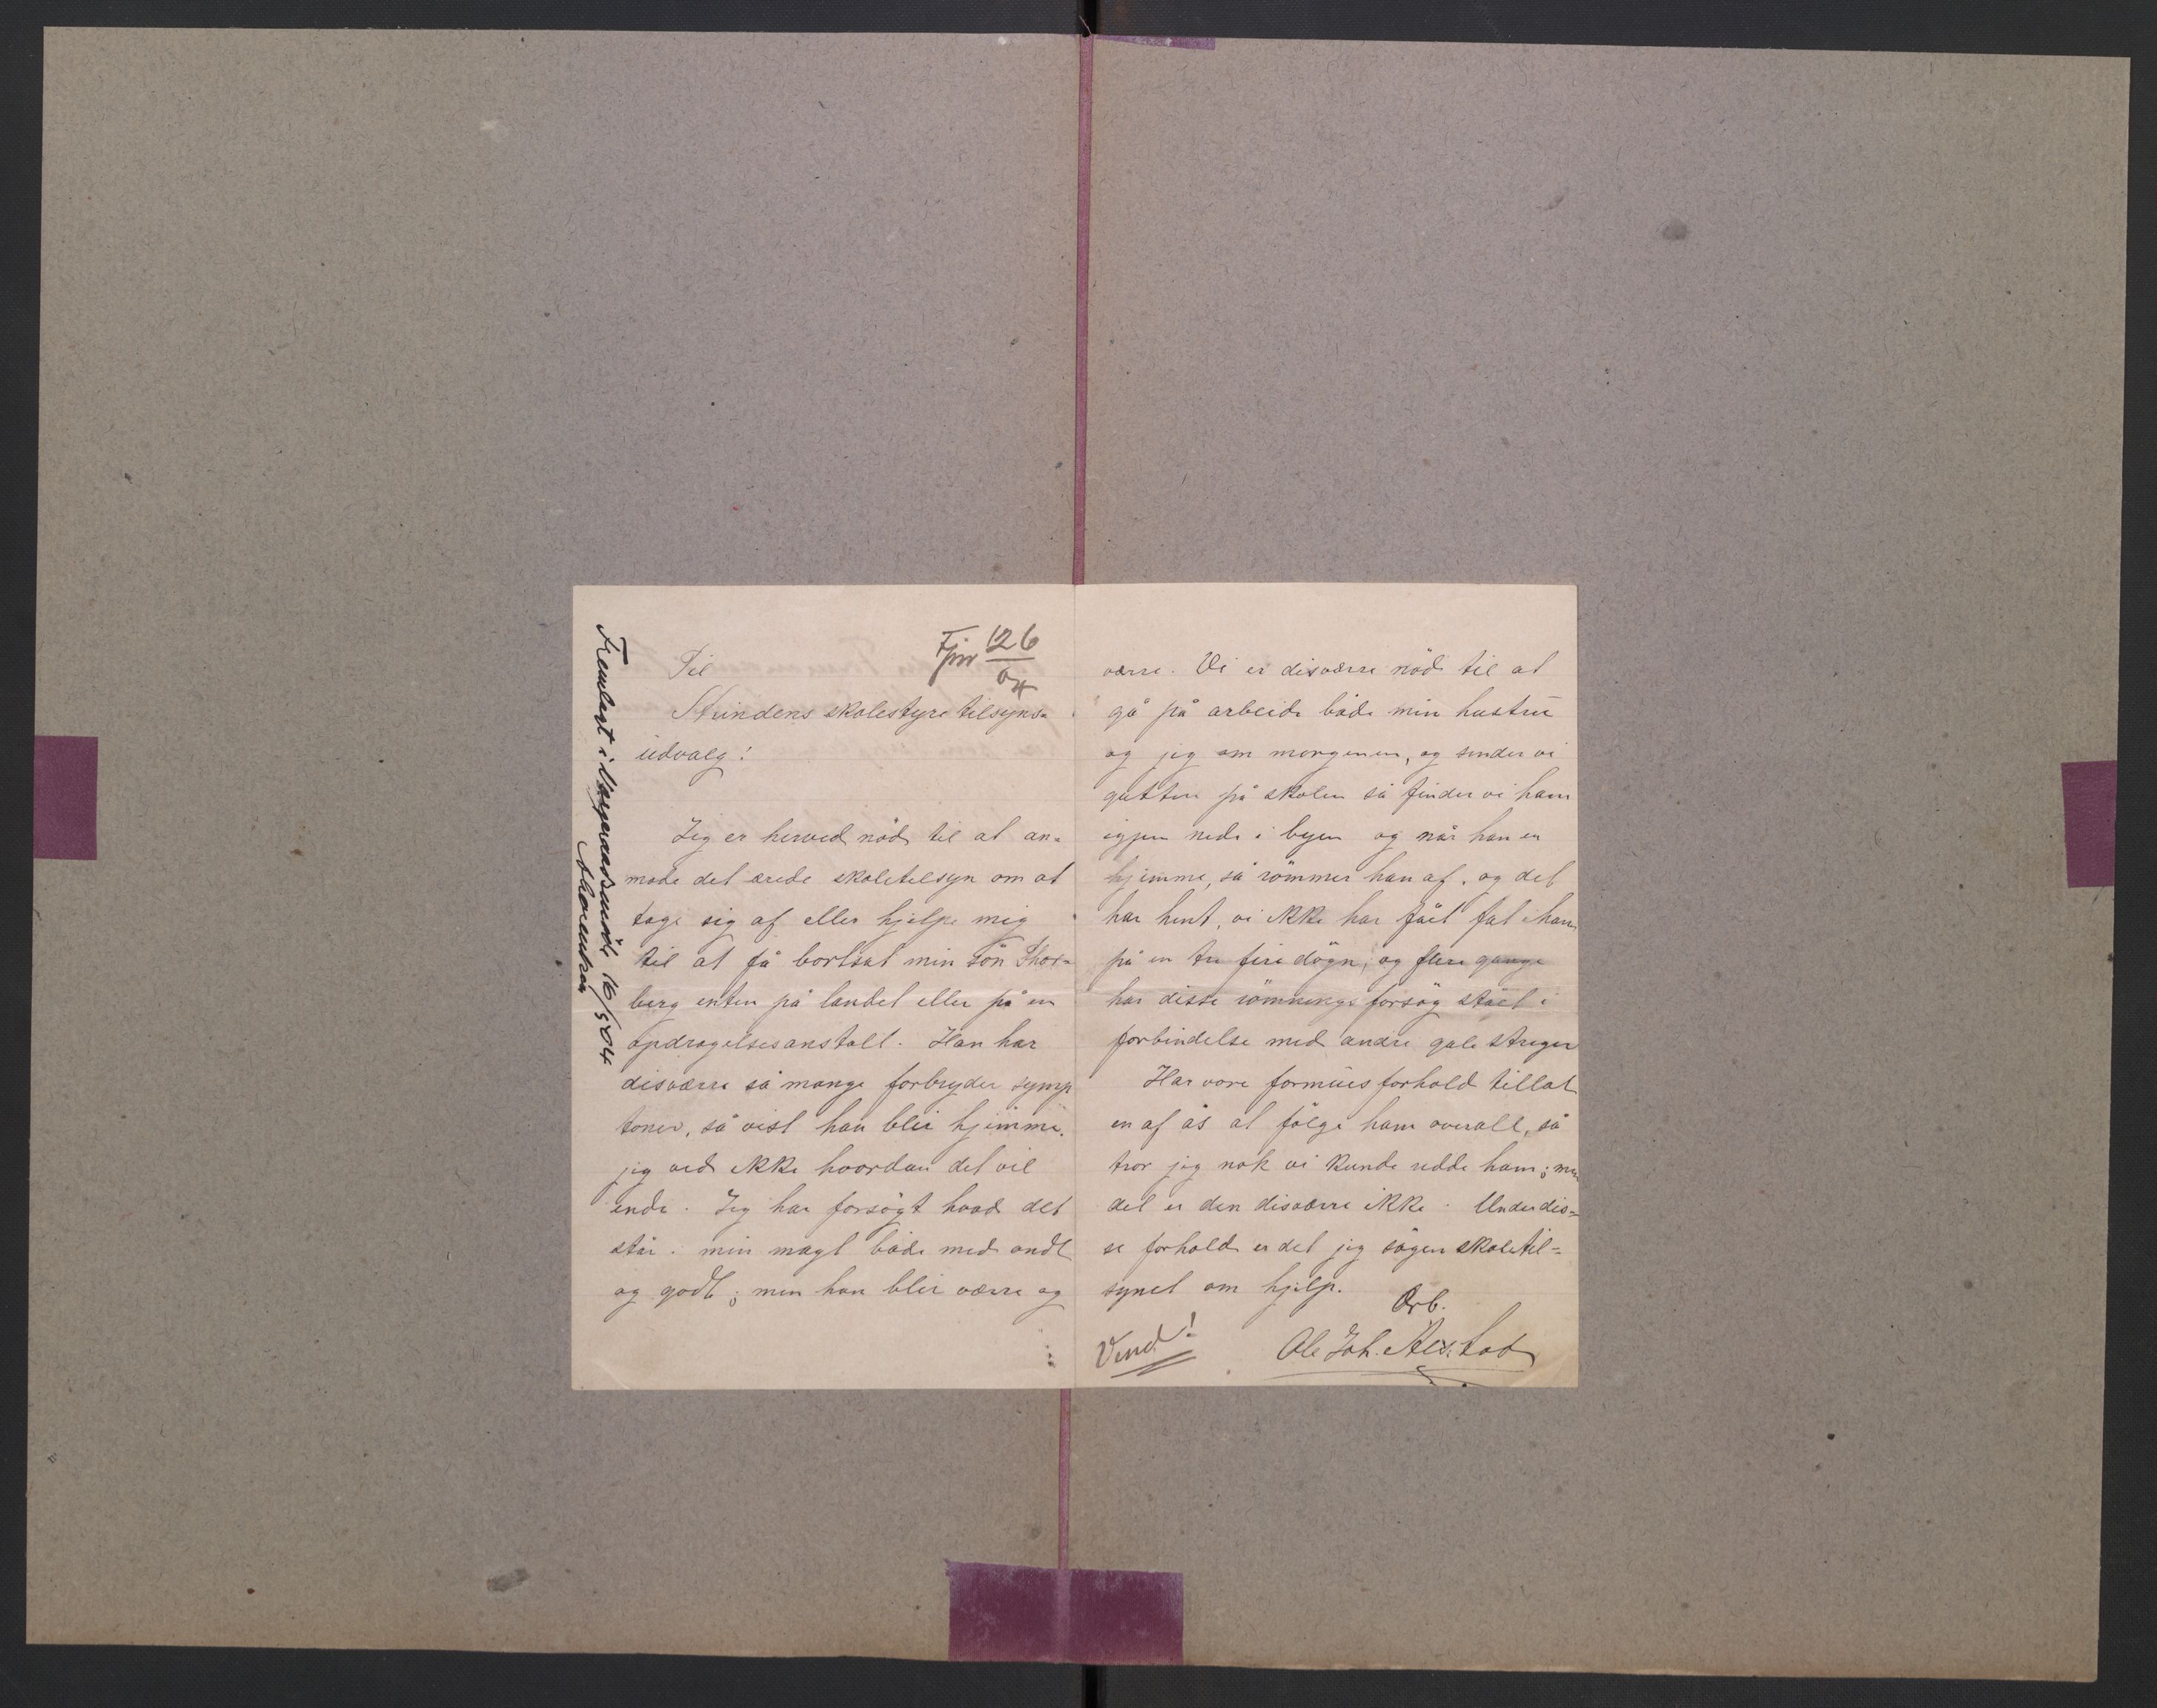 126
04
Til
Strindens skolestyre tilsyns-
udvalg!
Jeg er herved nöd til at an-
mode det ærede skoletilsyn om at
tage sig af eller hjelpe mig
til at få bortsat min sön Thor-
berg enten på landet eller på en
opdragelsesanstalt. Han har
disværre så mange forbryder symp
toner, så vist han blir hjemme.
jeg ved ikke hvordan det vil
ende. Jeg har forsögt hvad det
står i min magt både med ondt
og godt; men han blir værre og
Fremlagt i 16/5 04
værre. Vi er disværre nöd til at
gå på arbeide både min hustru
og jeg om morgenen, og sender vi
gutten på skolen så finder vi ham
igjen nede i byen og når han er
hjemme, så römmer han af. og det
har hent, vi ikke har fået fat i ham
på en tre fire dögn, og flere gange
har disse römningsforsög stået i
forbindelse med andre gale streger
Har vore formues forhold tillat
en af os at fölge ham overalt, så
tror jeg nok vi kunde redde ham; men
det er den disværre ikke. Under dis-
se forhold er det jeg söger skoletil-
synet om hjelp.
Ærb.
Vend!
Ole Joh.